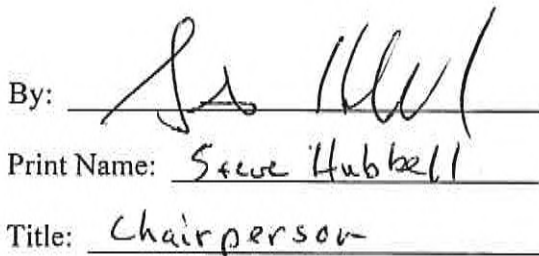 By:
Print Name: Steve Hubbell
Title: Chairperson